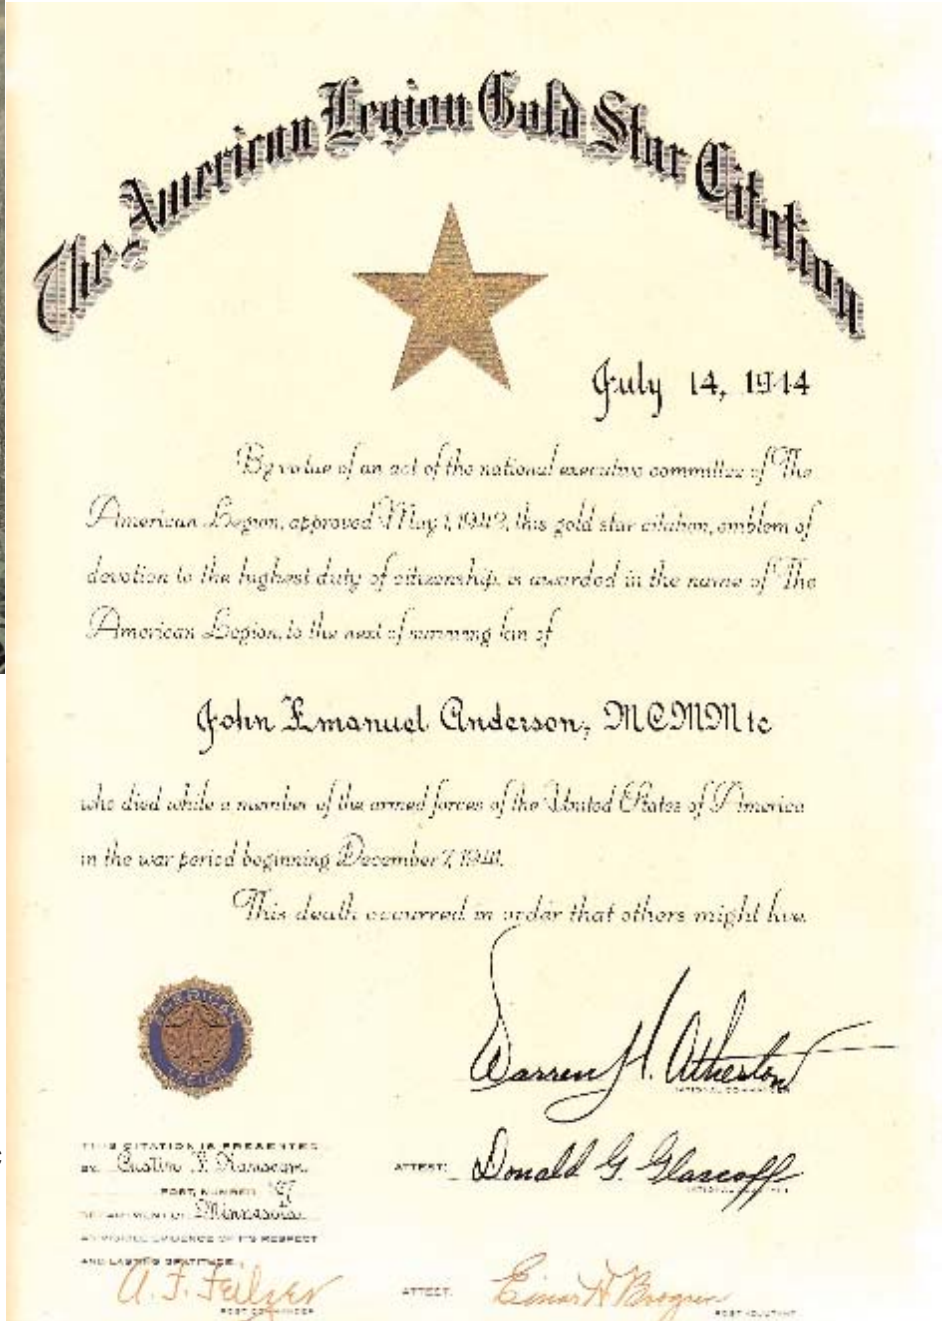 The American Legion Gold Star Citation
July 14, 1944
By virtue of an act of the national executive committee of The
American Legion, approved May 1, 1942, this gold star citation, emblem of
devotion to the highest duty of citizenship, is awarded in the name of The
American Legion, to the next of surviving kin of
John Emanuel Anderson, MCMM1c
who died while a member of the armed forces of the United States of America
in the war period beginning December 7, 1941.
This death occurred in order that others might live.
AMERICAN
LEGION
Warren H. Atherton
NATIONAL COMMANDER
THIS CITATION IS PRESENTED
BY
POST, NUMBER
DEPARTMENT OF Minnesota
AS VISIBLE EVIDENCE OF ITS RESPECT
AND LASTING GRATITUDE.
ATTEST: Donald G. Glascoff
A. F.
POST COMMANDER
ATTEST: Einar H.
POST ADJUTANT